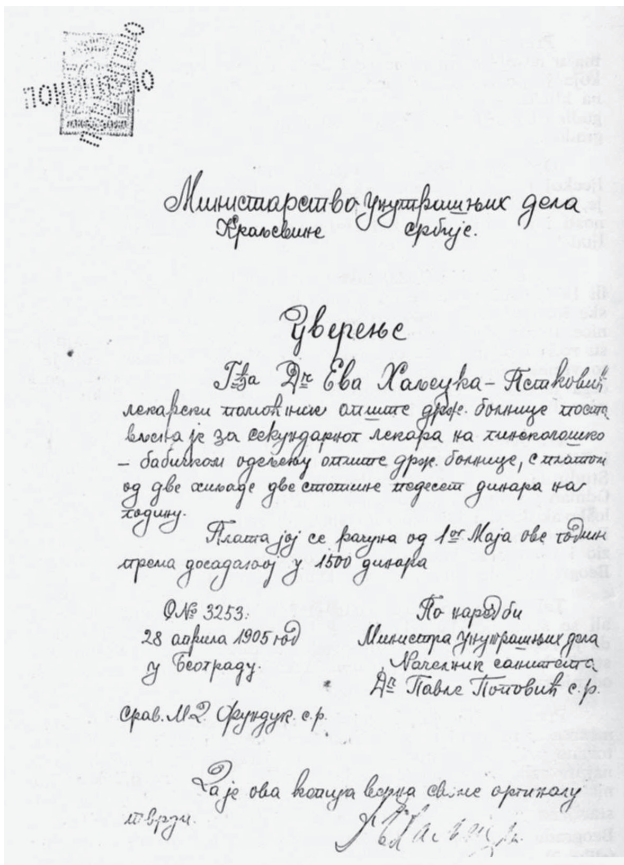 ПОНИШТЕНО
ПОНИШТЕНО
Министарство унутрашњих дела
Краљевине Србије.
Уверење
Гђа Др Ева Хаљецка-Петковић
лекарски помоћник опште држ. болнице поста
вљена је за секундарног лекара на гинеколошко
– бабичком одељењу опште држ. болнице, с платом
од две хиљаде две стотине педесет динара на
годину.
Плата јој се рачуна од 1ог Маја ове године
према досадањој у 1500 динара
С№ 3253.
28 априла 1905 год
у Београду.
По наредби
Министра унутрашњих дела
Начелник санитета
Др Павле Поповић с.р.
срав. М.Д. Фундук. с.р.
Да је ова копија верна свиме оригиналу
тврди.